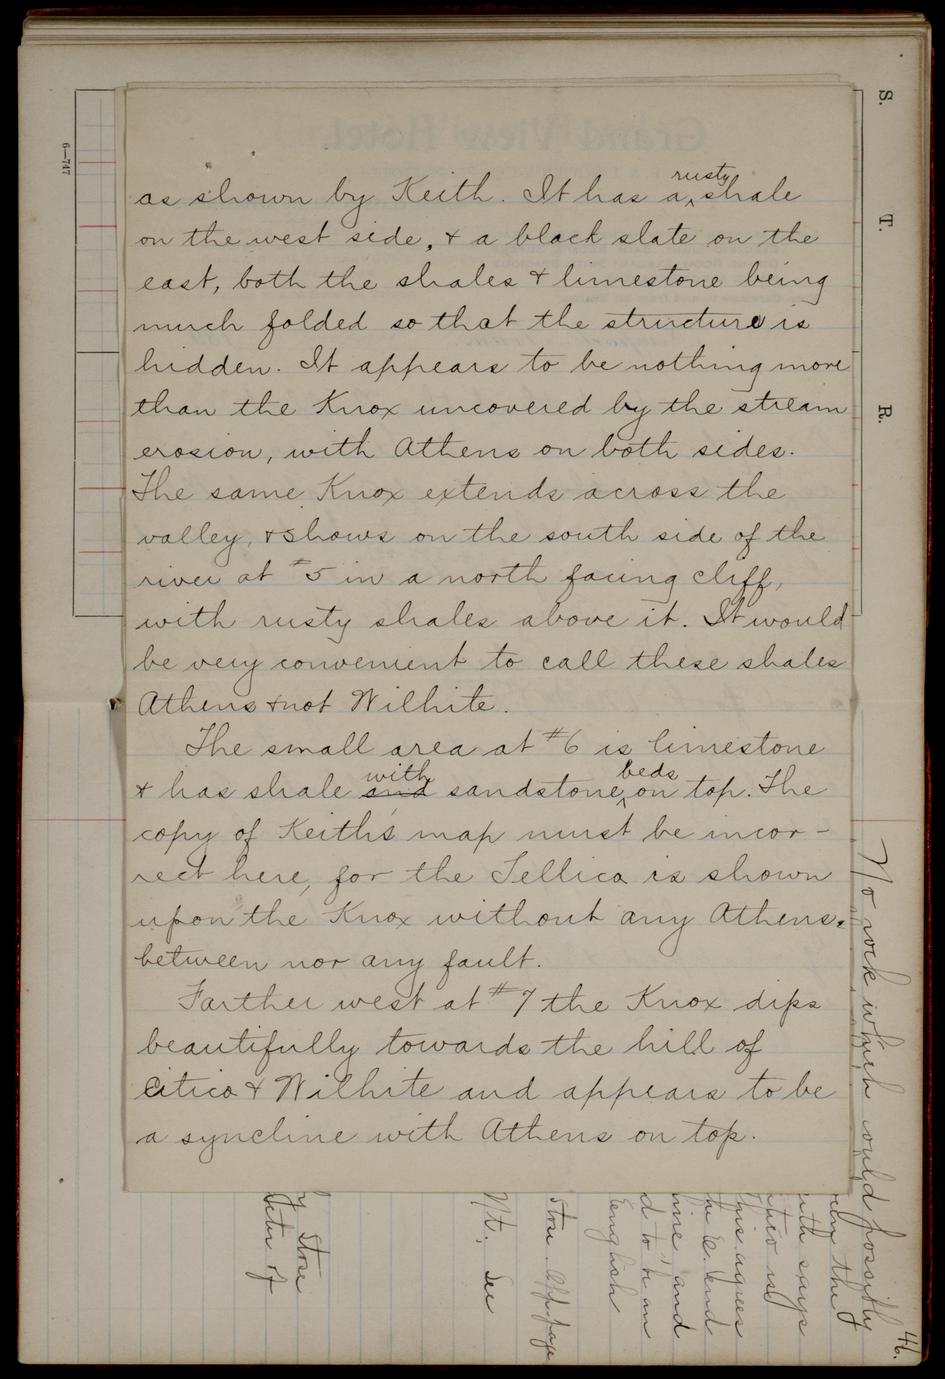 as shown by Keith. It has a rusty shale
on the west side, & a black slate on the
east, both the shales & limestone being
much folded so that the structure is
hidden. It appears to be nothing more
than the Knox uncovered by the stream
erosion, with Athens on both sides.
The same Knox extends across the
valley, & shows on the south side of the
river at #5 in a north facing cliff,
with rusty shales above it. It would
be very convenient to call these shales
Athens & not Wilhite.
The small area at #6 is limestone
& has shale and with sandstone beds on top. The
copy of Keith's map must be incor-
rect here, for the Tellico is shown
upon the Knox without any Athens
between nor any fault.
Farther west at #7 the Knox dips
beautifully towards the hill of
Citico & Wilhite and appears to be
a syncline with Athens on top.
S. T. R.
6—747
46.
No rock which could possibly
the
says
is
his agrees
E. end
and
d to be an
English
Stone opp page
Mt. See
Stone
of
Grand View Hotel